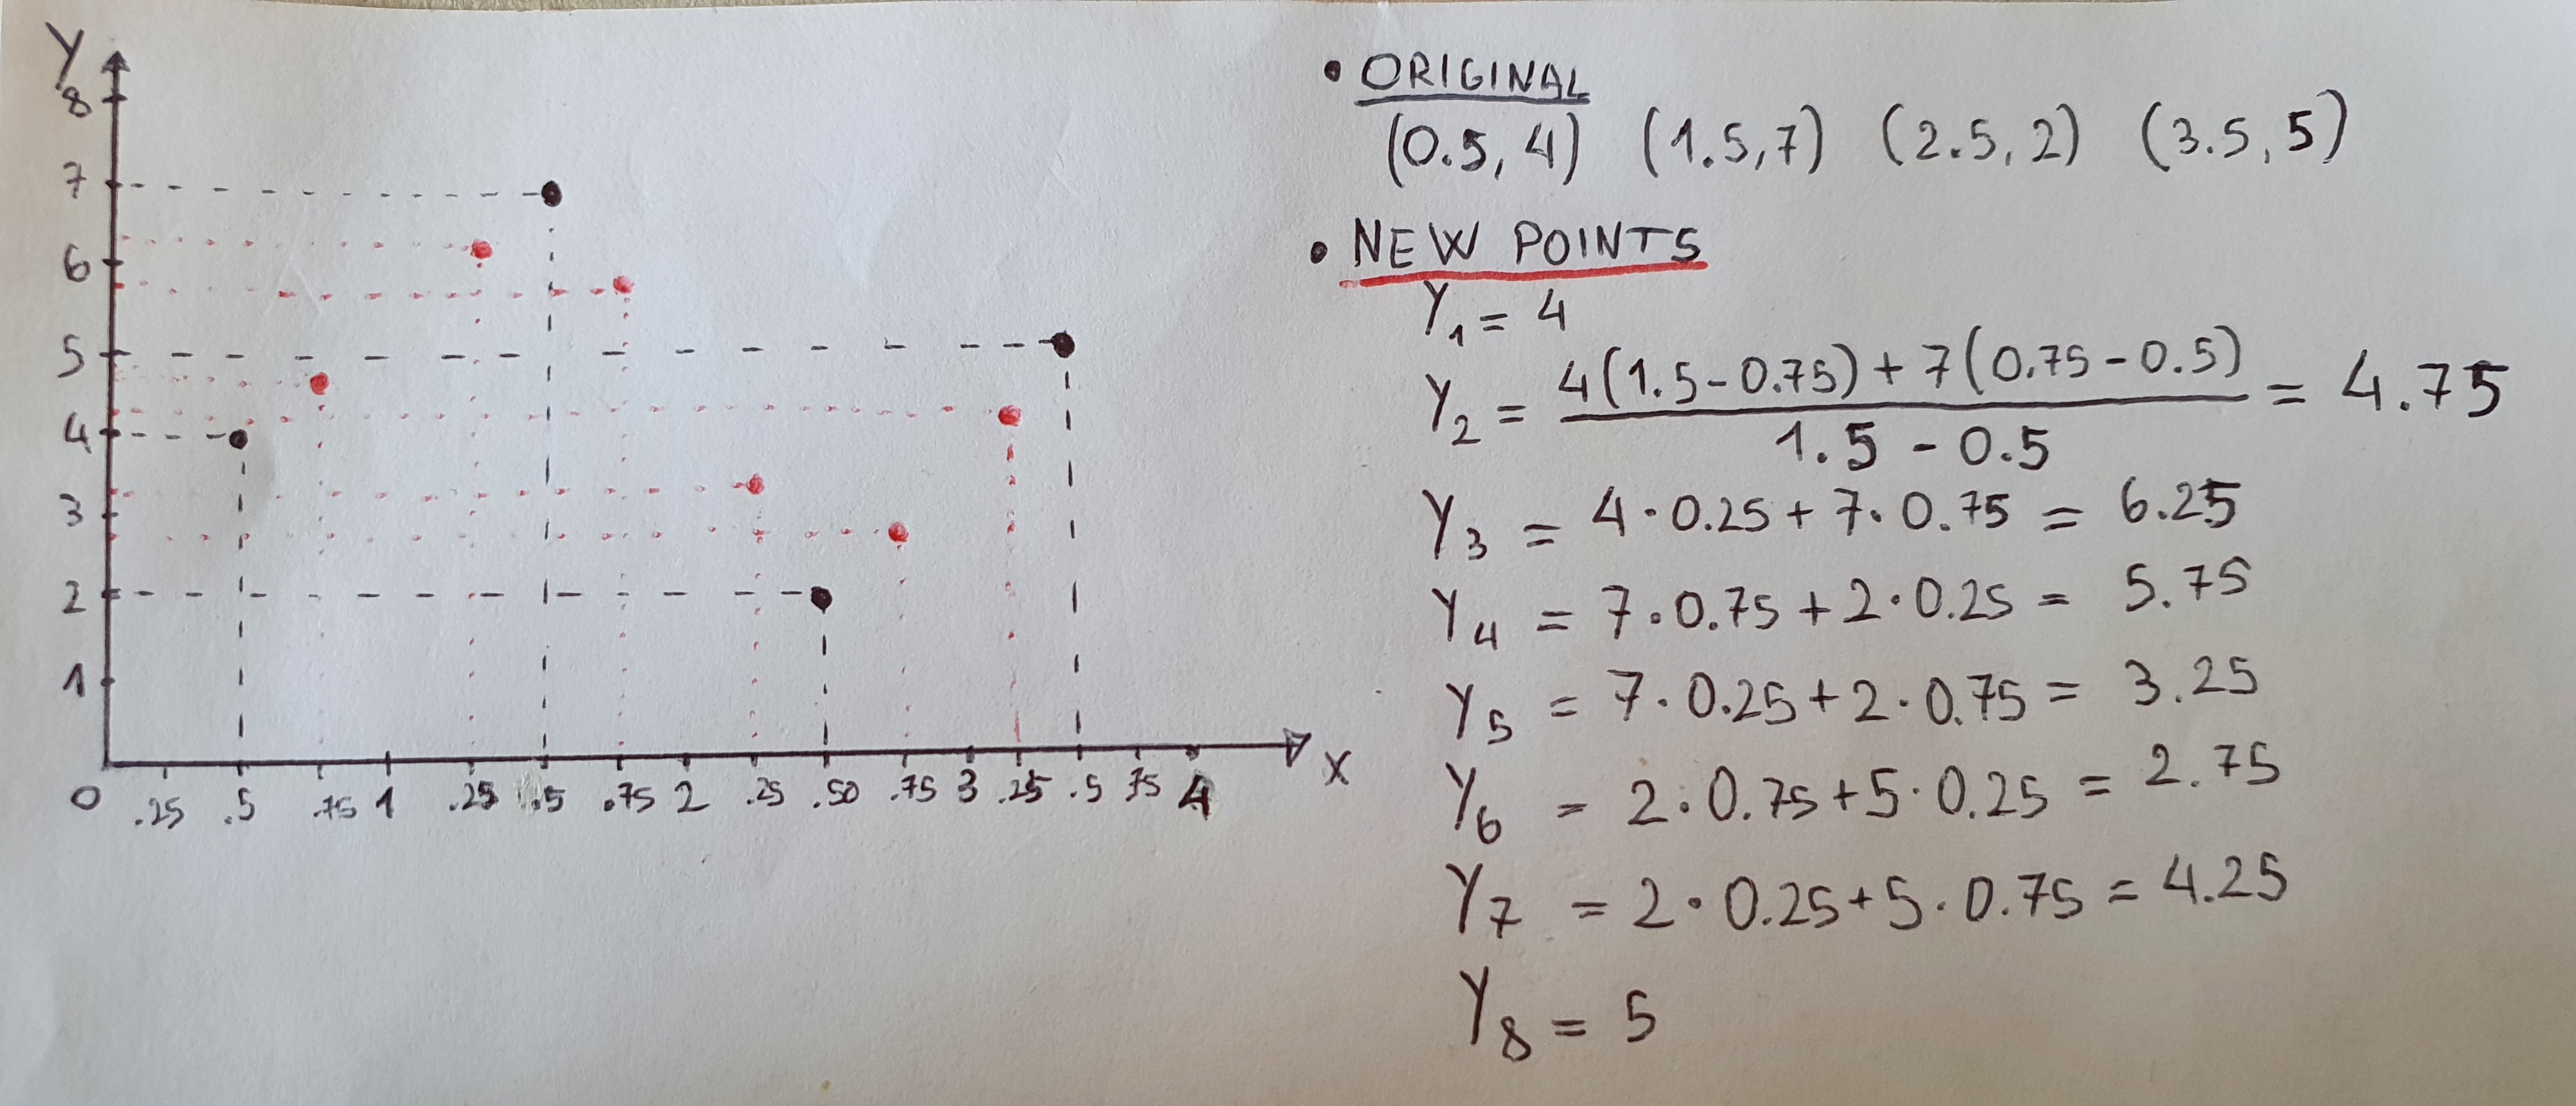 Y
8
7
6
5
4
3
2
1
0 .25 .5 .75 1 .25 1.5 .75 2 .25 .50 .75 3 .25 .5 .75 4 X
• ORIGINAL
(0.5, 4) (1.5, 7) (2.5, 2) (3.5, 5)
• NEW POINTS
Y1 = 4
Y2 = 4(1.5-0.75) + 7(0.75-0.5) / 1.5 - 0.5 = 4.75
Y3 = 4·0.25 + 7·0.75 = 6.25
Y4 = 7·0.75 + 2·0.25 = 5.75
Y5 = 7·0.25 + 2·0.75 = 3.25
Y6 = 2·0.75 + 5·0.25 = 2.75
Y7 = 2·0.25 + 5·0.75 = 4.25
Y8 = 5